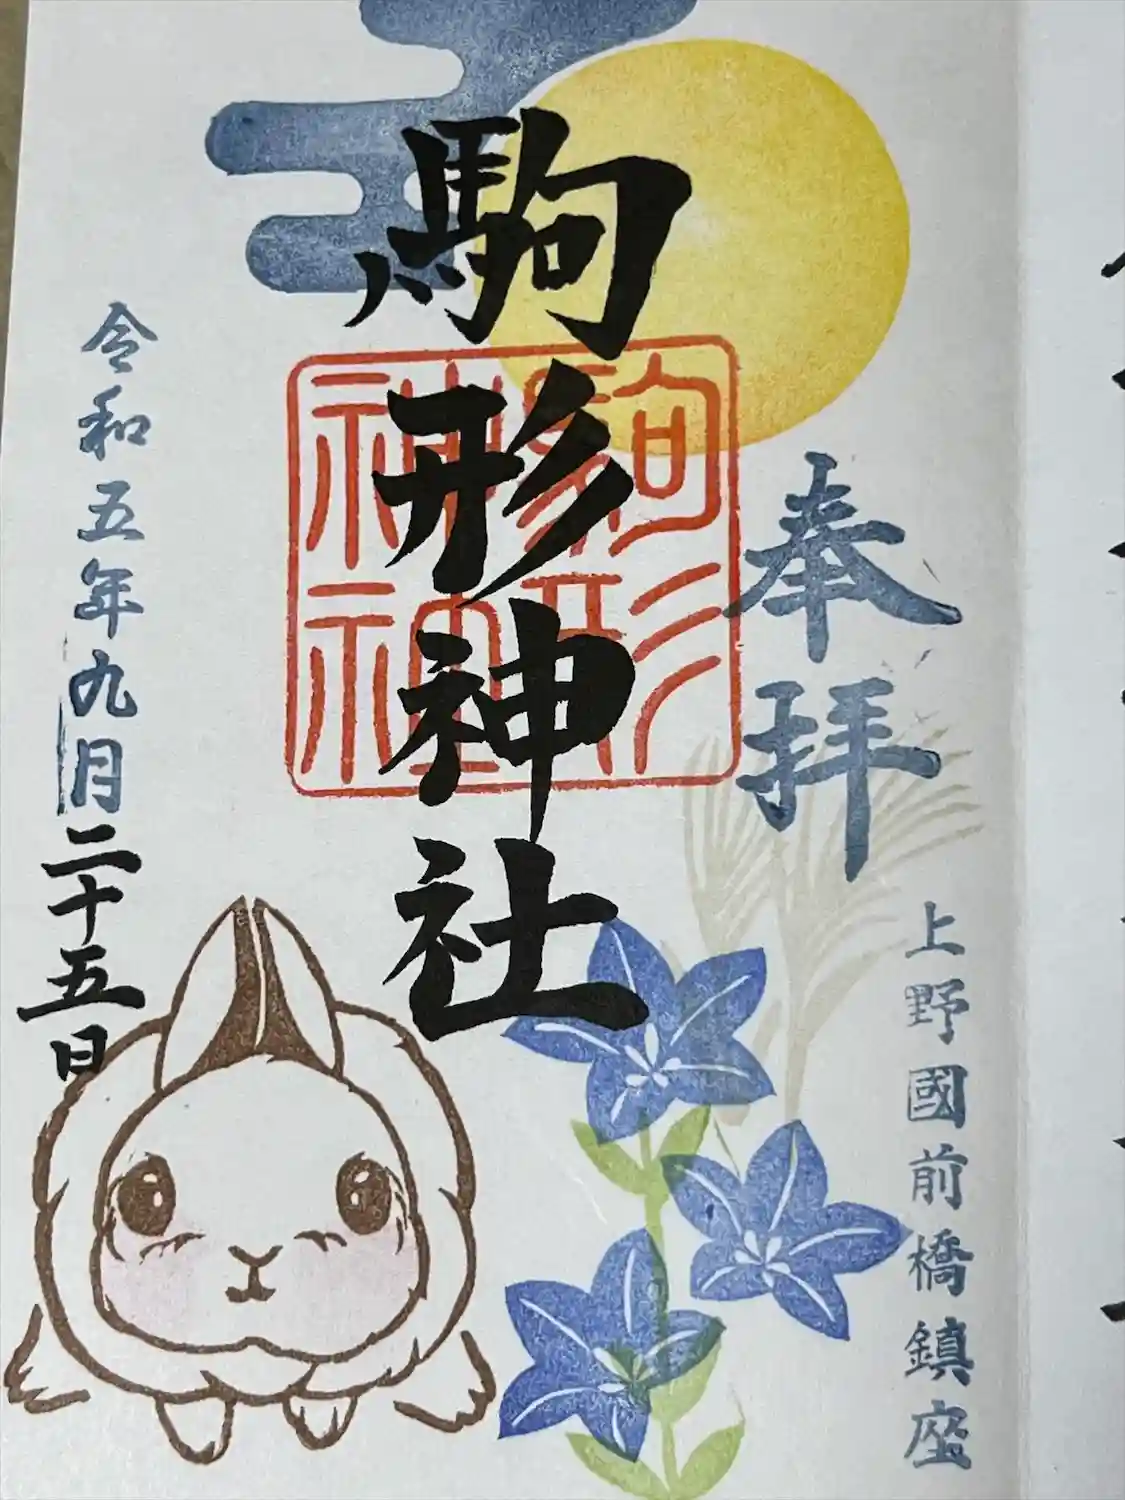 奉拝
上野國前橋鎮座
駒形神社
駒形
神社
令和五年九月二十五日